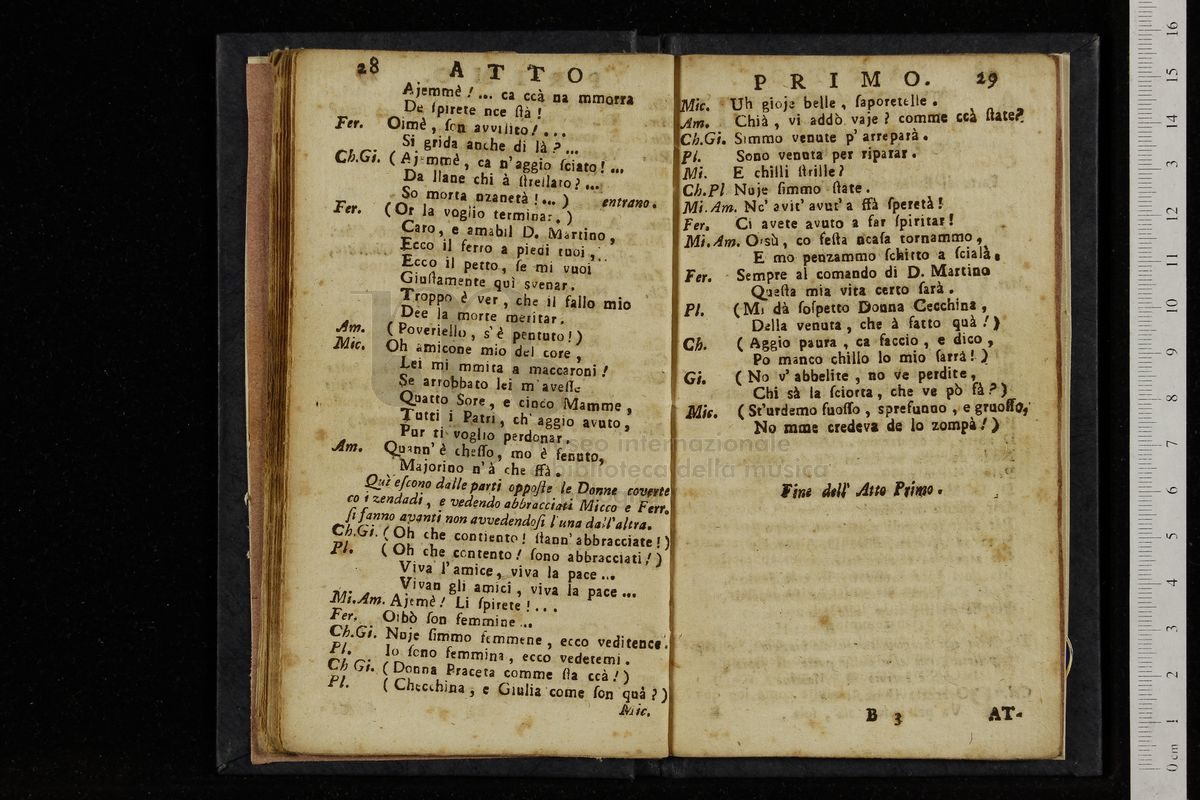 28 ATTO
Ajemmè!... ca ccà na mmorra
De ſpirete nce ſtà!
Fer. Oimè, ſon avvilito!...
Si grida anche di là?...
Ch.Gi. (Ajemmè, ca n'aggio ſciato!...
Da llane chi à ſtrellato?...
So morta nzanetà!...) entrano.
Fer. (Or la voglio terminar.)
Caro, e amabil D. Martino,
Ecco il ferro a piedi tuoi,
Ecco il petto, ſe mi vuoi
Giuſtamente quì svenar.
Troppo è ver, che il fallo mio
Dee la morte meritar.
Am. (Poveriello, s'è pentuto!)
Mic. Oh amicone mio del core,
Lei mi mmita a maccaroni!
Se arrobbato lei m'aveſſe
Quatto Sore, e cinco Mamme,
Tutti i Patri, ch'aggio avuto,
Pur ti voglio perdonar.
Am. Quann'è cheſſo, mo è fenuto,
Majorino n'à che ffà.
Quì eſcono dalle parti oppoſte le Donne coverte
co i zendadi, e vedendo abbracciati Micco e Ferr.
ſi fanno avanti non avvedendoſi l'una dall'altra.
Ch.Gi. (Oh che contiento! ſtann'abbracciate!)
Pl. (Oh che contento! ſono abbracciati!)
Viva l'amice, viva la pace...
Vivan gli amici, viva la pace...
Mi.Am. Ajemè! Li ſpirete!...
Fer. Oibò ſon femmine...
Ch.Gi. Nuje ſimmo femmene, ecco veditence.
Pl. Io ſono femmina, ecco vedetemi.
Ch Gi. (Donna Praceta comme ſta ccà!)
Pl. (Checchina, e Giulia come ſon quà?)
Mic.
PRIMO. 29
Mic. Uh gioje belle, ſaporetelle.
Am. Chià, vi addò vaje? comme ccà ſtate?
Ch.Gi. Simmo venute p'arreparà.
Pl. Sono venuta per riparar.
Mi. E chilli ſtrille?
Ch.Pl Nuje ſimmo ſtate.
Mi.Am. Nc'avit'avut'a ffà ſperetà!
Fer. Ci avete avuto a far ſpiritar!
Mi.Am. Orsù, co feſta ncaſa tornammo,
E mo penzammo ſchitto a ſcialà.
Fer. Sempre al comando di D. Martino
Queſta mia vita certo ſarà.
Pl. (Mi dà ſoſpetto Donna Cecchina,
Della venuta, che à fatto quà!)
Ch. (Aggio paura, ca faccio, e dico,
Po manco chillo lo mio ſarrà!)
Gi. (No v'abbelite, no ve perdite,
Chi sà la ſciorta, che ve pò fà?)
Mic. (St'urdemo fuoſſo, sprefunno, e gruoſſo,
No mme credeva de lo zompà!)
Fine dell' Atto Primo.
B 3 AT-
museo internazionale
e biblioteca della musica
16
15
14
13
12
11
10
9
8
7
6
5
4
3
2
1
0 cm